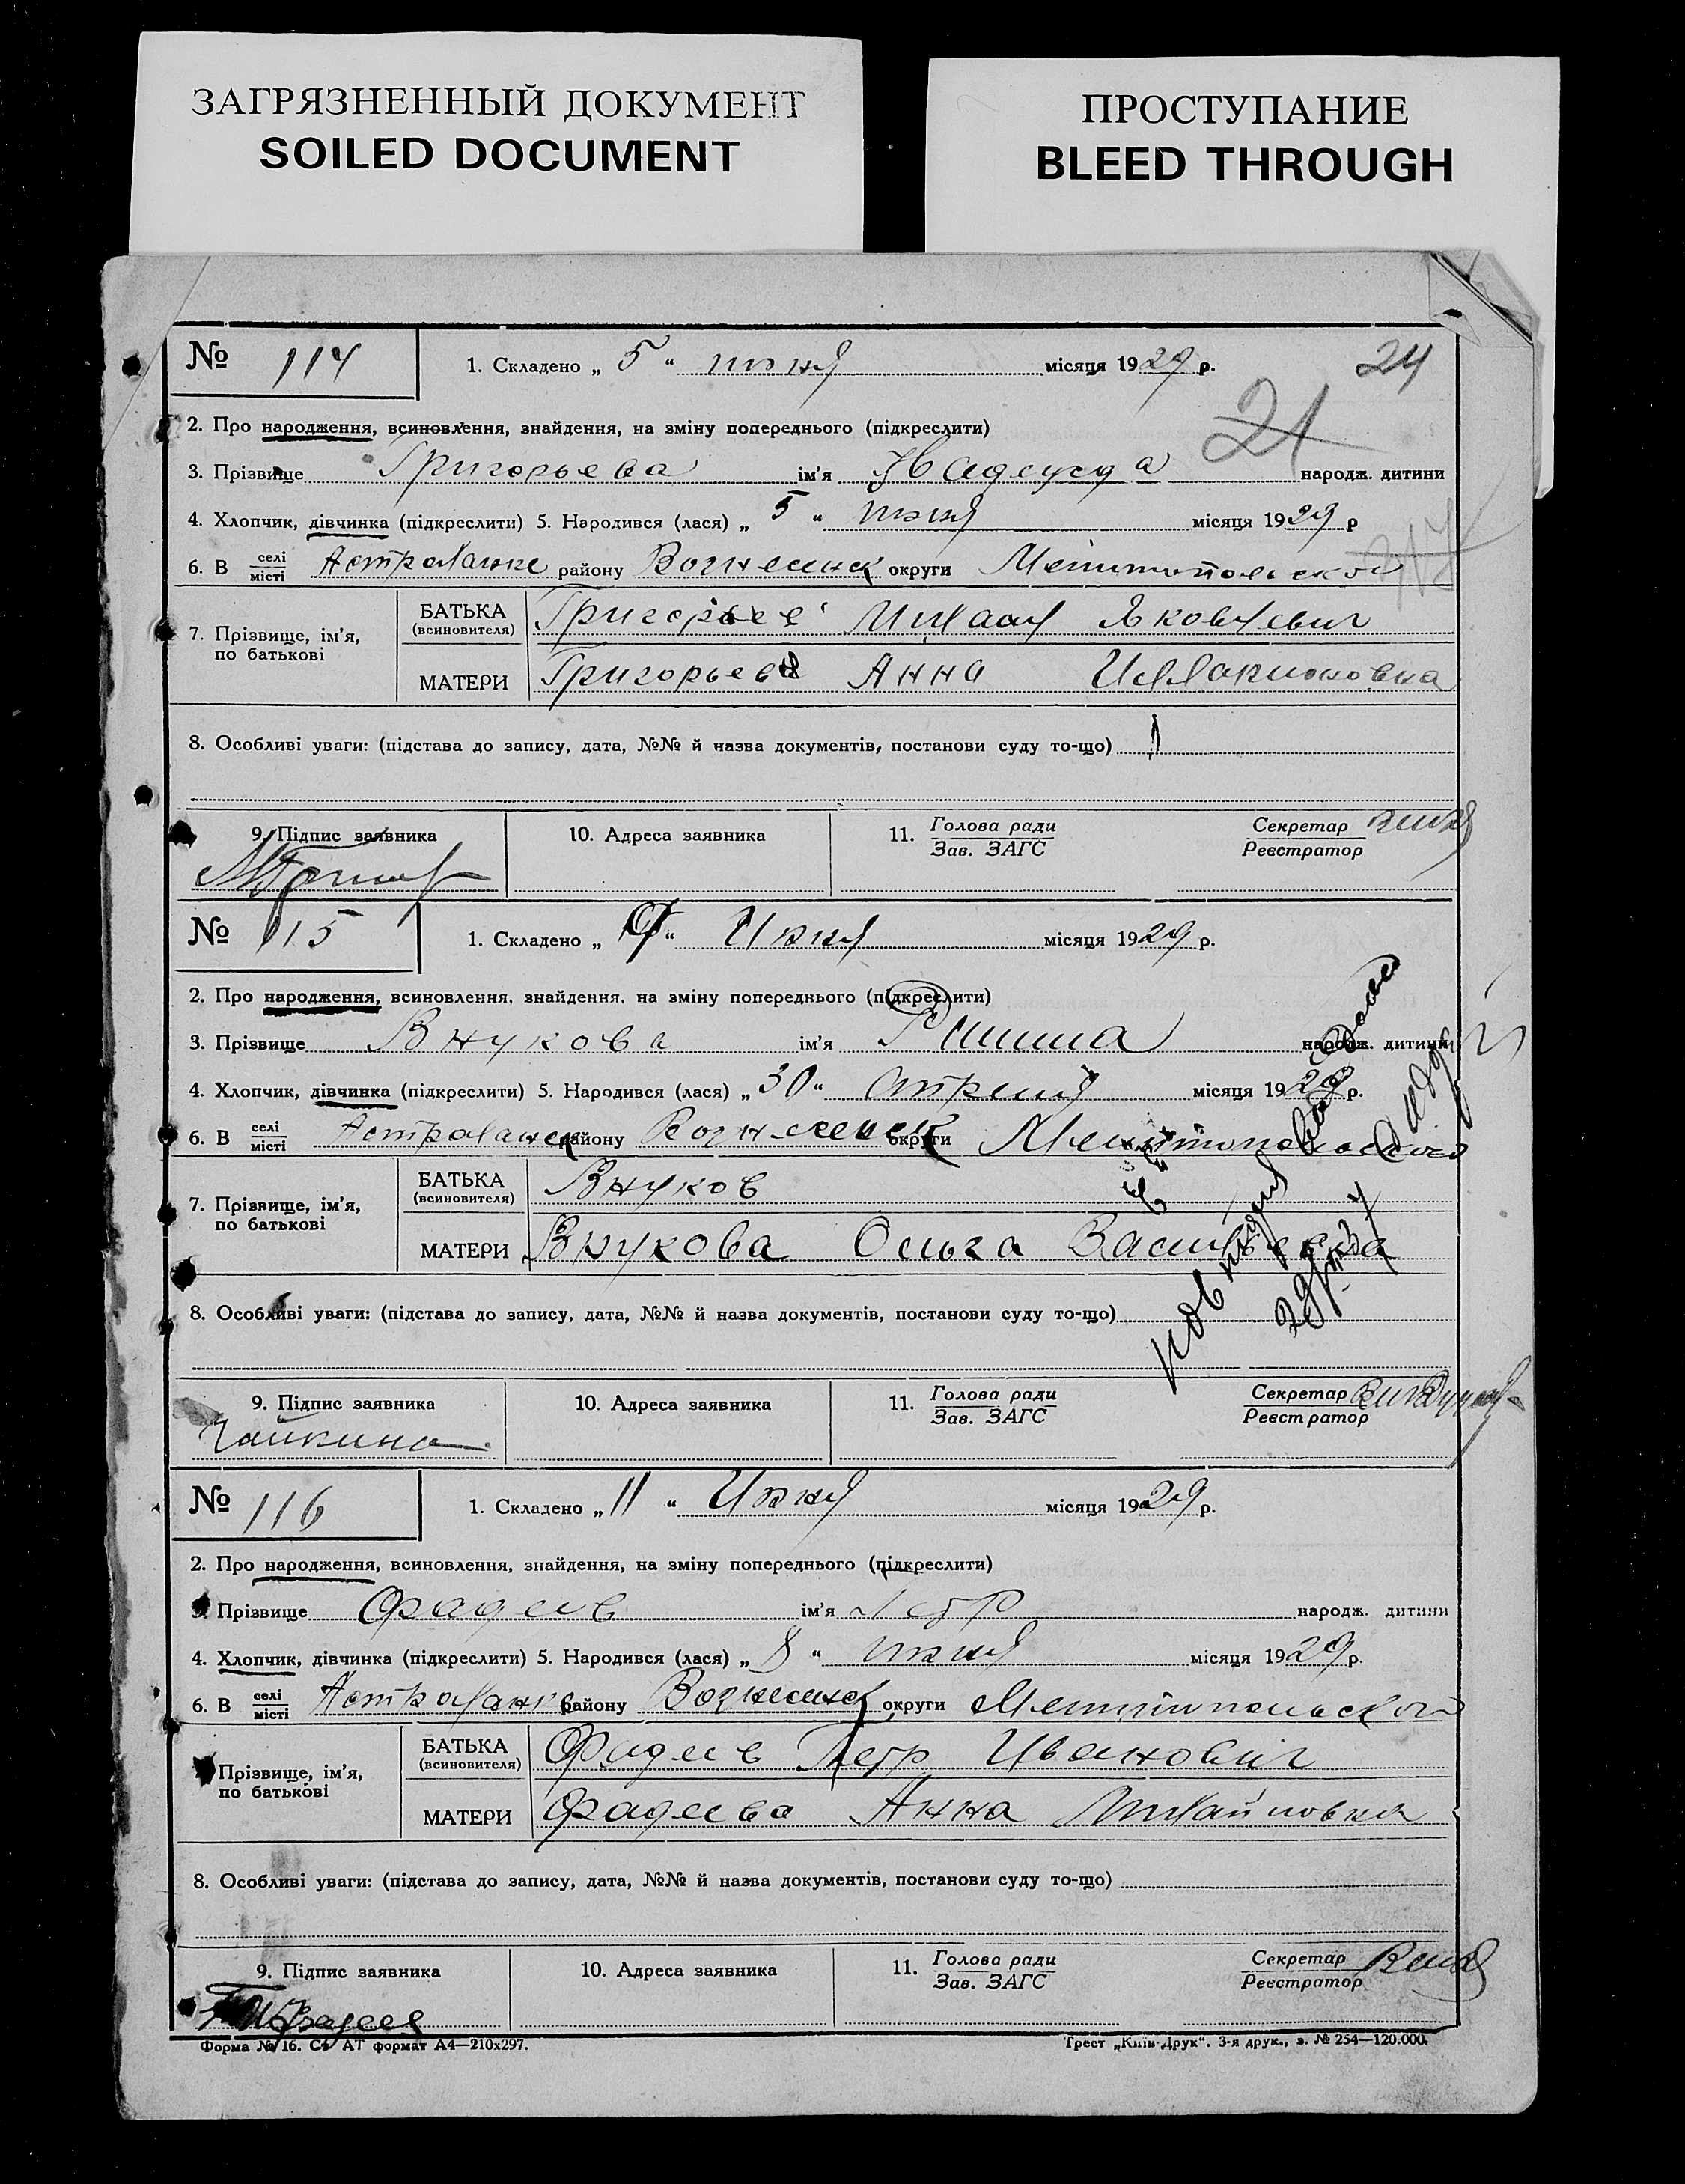 ЗАГРЯЗНЕННЫЙ ДОКУМЕНТ
SOILED DOCUMENT
ПРОСТУПАНИЕ
BLEED THROUGH
24
№ 114 1. Складено „ 5 “ июня місяця 1929 р.
21
2. Про народження, всиновлення, знайдення, на зміну попереднього (підкреслити)
3. Прізвище Григорьева ім'я Надежда народж. дитини
4. Хлопчик, дівчинка (підкреслити) 5. Народився (лася) „ 5 “ июня місяця 1929 р
6. В селі/місті Астраханке району Вознесенск округи Мелитопольской
7. Прізвище, ім'я, по батькові
БАТЬКА (всиновителя) Григорьев Михаил Яковлевич
МАТЕРИ Григорьева Анна Илларионовна
8. Особливі уваги: (підстава до запису, дата, №№ й назва документів, постанови суду то-що)
9. Підпис заявника 10. Адреса заявника 11. Голова ради/Зав. ЗАГС Секретар/Реєстратор
№ 115 1. Складено „ “ Июня місяця 1929 р.
2. Про народження, всиновлення, знайдення, на зміну попереднього (підкреслити)
3. Прізвище Внукова ім'я народж. дитини
4. Хлопчик, дівчинка (підкреслити) 5. Народився (лася) „ 30 “ апреля місяця 1929 р.
6. В селі/місті Астраханке району Вознесенск округи Мелитопольской
7. Прізвище, ім'я, по батькові
БАТЬКА (всиновителя) Внуков
МАТЕРИ Внукова Ольга Васильевна
8. Особливі уваги: (підстава до запису, дата, №№ й назва документів, постанови суду то-що)
9. Підпис заявника 10. Адреса заявника 11. Голова ради/Зав. ЗАГС Секретар/Реєстратор
Чайкина
№ 116 1. Складено „ 11 “ Июня місяця 1929 р.
2. Про народження, всиновлення, знайдення, на зміну попереднього (підкреслити)
3. Прізвище Фадеев ім'я Петр народж. дитини
4. Хлопчик, дівчинка (підкреслити) 5. Народився (лася) „ 8 “ июня місяця 1929 р.
6. В селі/місті Астраханке району Вознесенск округи Мелитопольской
Прізвище, ім'я, по батькові
БАТЬКА (всиновителя) Фадеев Петр Иванович
МАТЕРИ Фадеева Анна Михайловна
8. Особливі уваги: (підстава до запису, дата, №№ й назва документів, постанови суду то-що)
9. Підпис заявника 10. Адреса заявника 11. Голова ради/Зав. ЗАГС Секретар/Реєстратор
Форма № 16. Ст АТ формат А4—210x297. Трест „Київ-Друк“. 3-я друк., з. № 254—120.000.